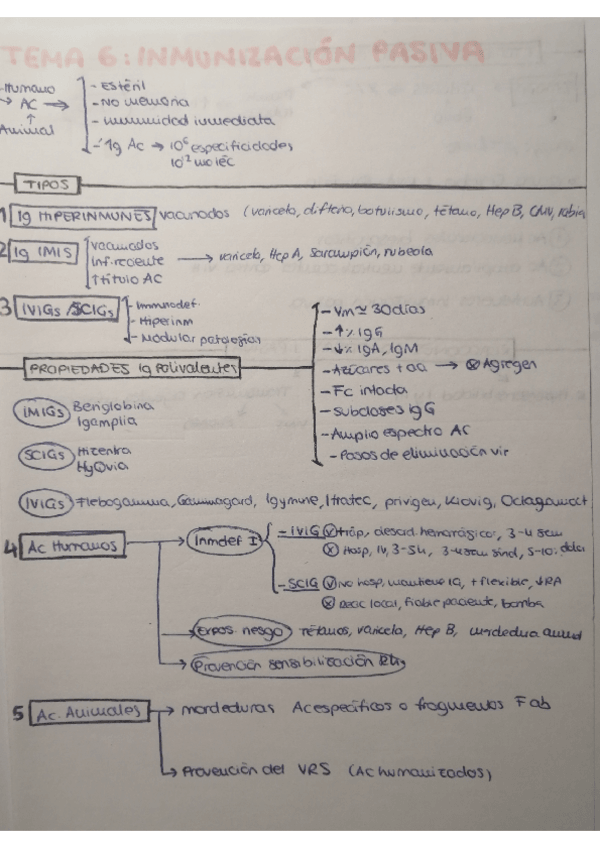 TEMA 6: INMUNIZACIÓN PASIVA
Humano
→ AC →
↑
Animal
- Estéril
- No memoria
- inmunidad inmediata
- 1g Ac → 10⁶ especificidades
TIPOS
1 Ig HIPERINMUNES vacunados (varicela, difteria, botulismo, tétano, Hep B, CMV, rabia
2 Ig IMIS
vacunados
Infreciente
↑título AC
→ varicela, Hep A, Sarampión, rubeola
3 IVIGs/SCIGs
- Inmunodef.
- Hiperinm
- Modular patologías
- Vm ≃ 30días
- ↑% IgG
- ↓% IgA, IgM
- Azúcares + aa → ⊗ Agregen
- Fc intacta
- Subclases IgG
- Amplio espectro AC
- Pasos de eliminación vir
PROPIEDADES Ig Polivalentes
IMIGs Beriglobina
Igamplia
SCIGs Hizentra
HyQvia
IVIGs Flebogamma, Gammagard, Igymune, Itratec, privigen, Kiovig, Octagamoct
4 Ac Humanos
→ Inmdef I
- IVIG ✓ trap, descid. hemorágicos, 3-4 sem
⊗ Hosp, IV, 3-5h, 3-4sem sínd, 5-10.
- SCIG ✓ No hosp, mantiene IQ, + flexible, ↓RA
⊗ Reac local, fiable paciente, bomba
→ Expos. riesgo Tétanos, varicela, Hep B,
→ Prevención sensibilización Rh
5 Ac. Animales → mordeduras Ac específicos o fragmentos Fab
→ Prevención del VRS (Ac humanizados)